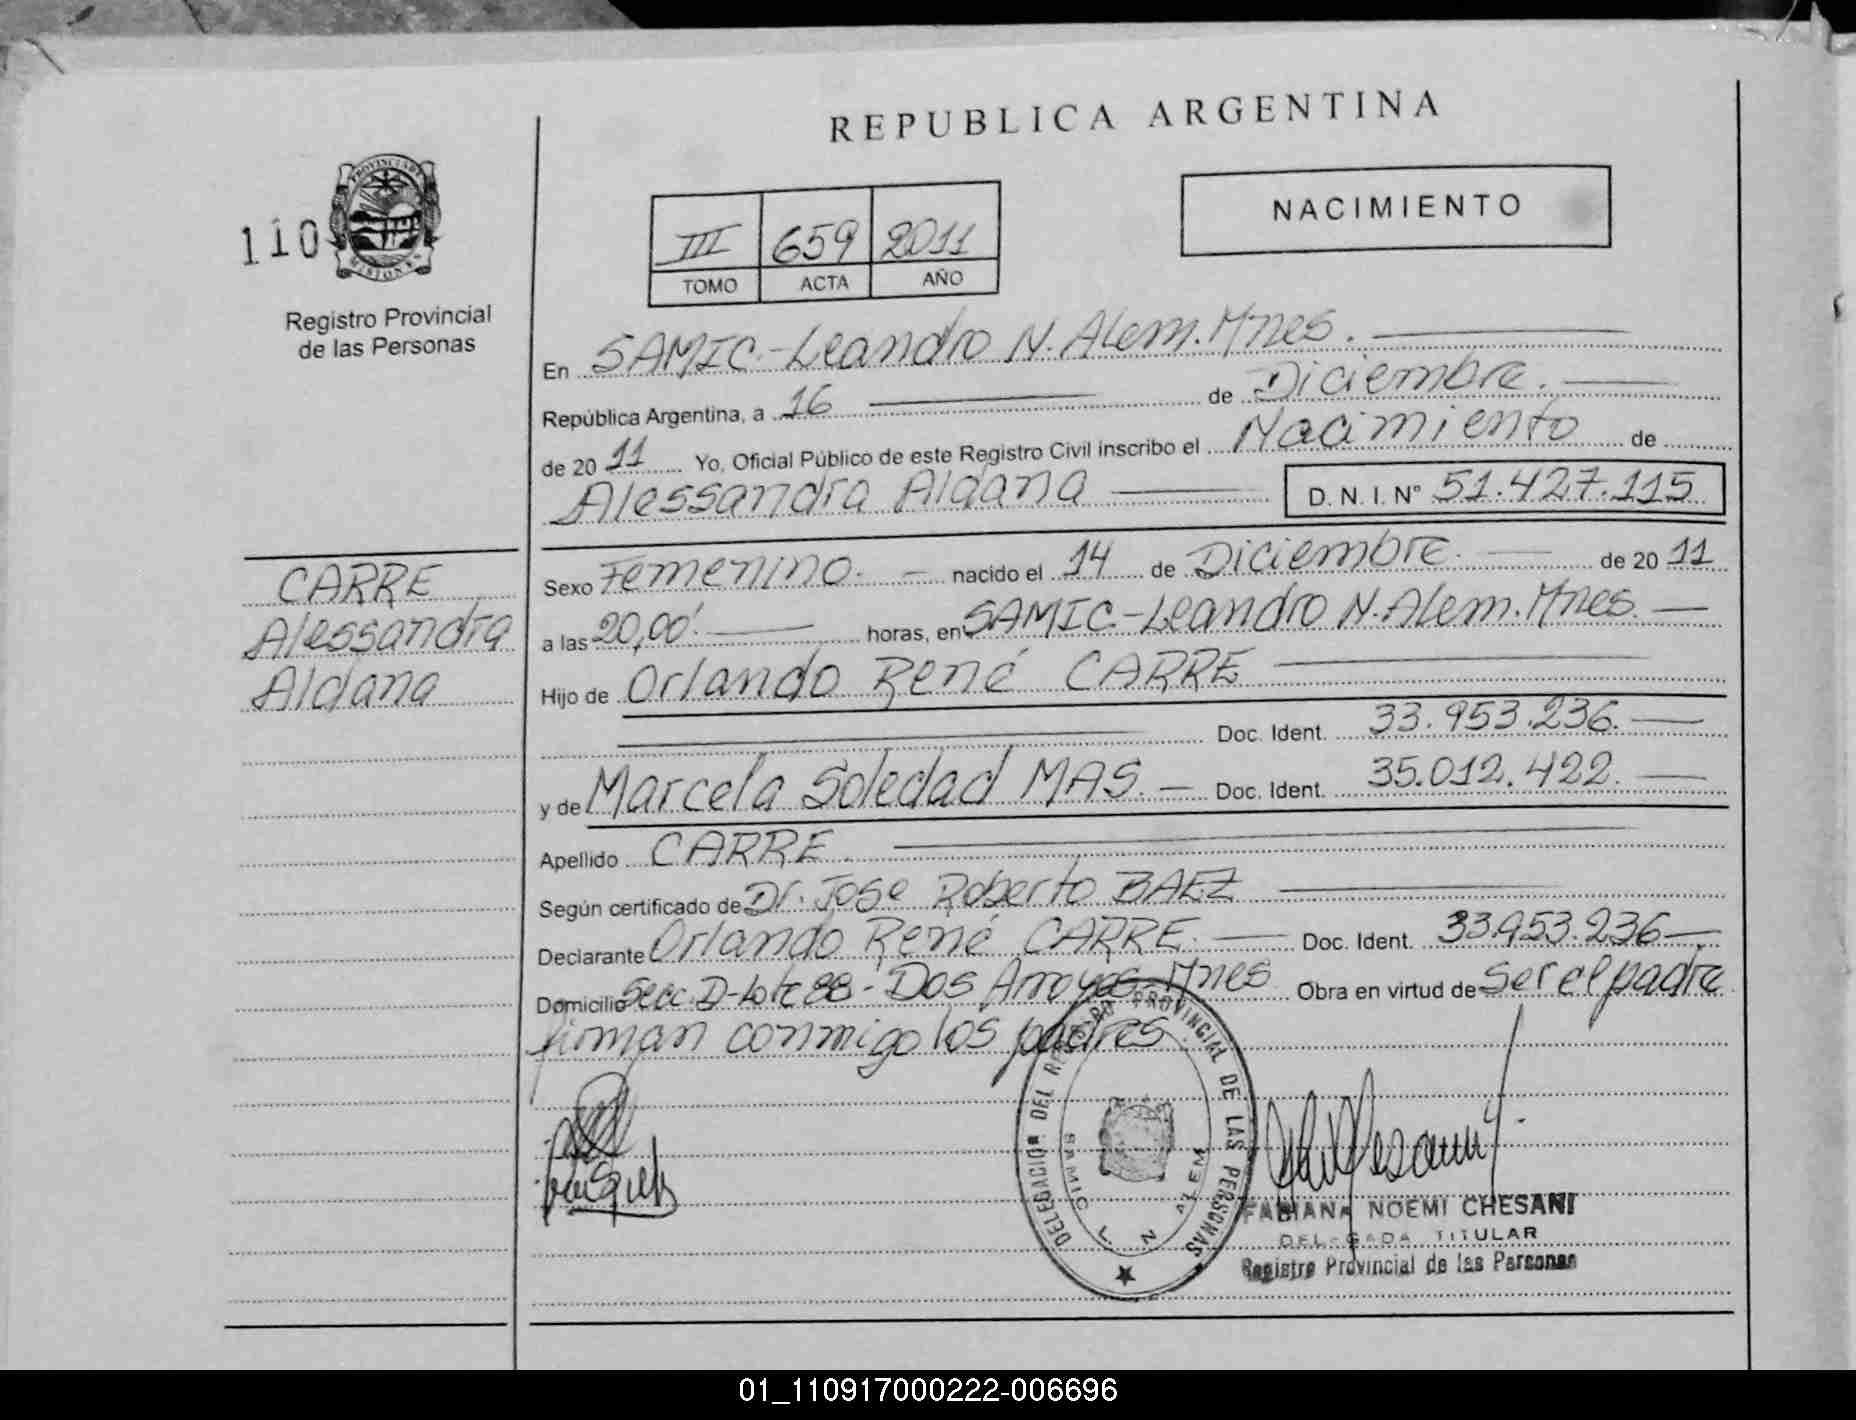 REPUBLICA ARGENTINA
110
PROVINCIA DE MISIONES
Registro Provincial
de las Personas
III 659 2011
TOMO ACTA AÑO
NACIMIENTO
En SAMIC.-Leandro N. Alem. Mnes.
República Argentina, a 16 de Diciembre.
de 20 11 Yo, Oficial Público de este Registro Civil inscribo el Nacimiento de
Alessandra Aldana D. N. I. Nº 51.427.115
CARRE
Alessandra
Aldana
Sexo Femenino. nacido el 14 de Diciembre. de 20 11
a las 20,00'. horas, en SAMIC.-Leandro N. Alem. Mnes.
Hijo de Orlando René CARRE
Doc. Ident. 33.953.236.
y de Marcela Soledad MAS. Doc. Ident. 35.012.422.
Apellido CARRE
Según certificado de Dr. Jose Roberto BAEZ
Declarante Orlando René CARRE. Doc. Ident. 33.953.236
Domicilio Secc. D-Lote 88 - Dos Arroyos-Mnes Obra en virtud de Ser el padre
firman conmigo los padres
DELEGACION DEL REGISTRO PROVINCIAL DE LAS PERSONAS
SAMIC L. N. ALEM
FABIANA NOEMI CHESANI
DELEGADA TITULAR
Registro Provincial de las Personas
01_110917000222-006696